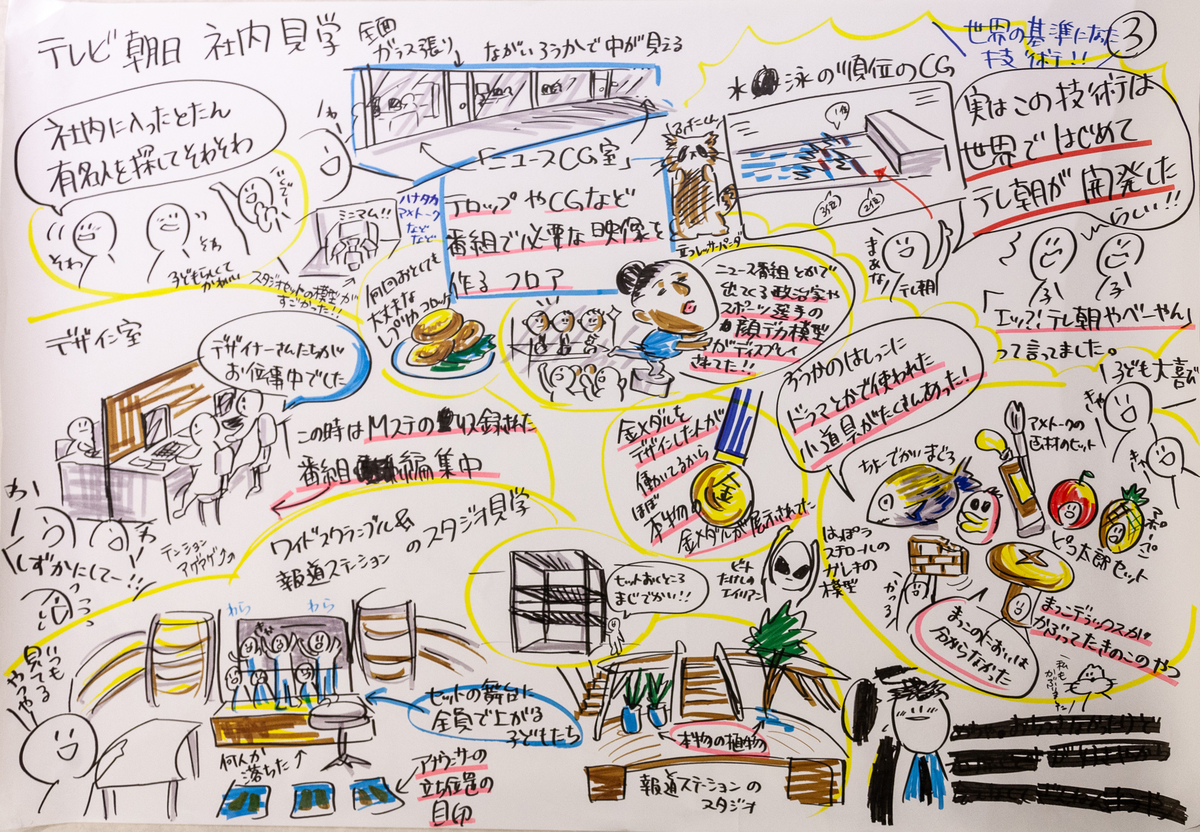 テレビ朝日 社内見学
全面
ガラス張り
ながいろうかで中が見える
世界の基準になった
技術!!
③
社内に入ったとたん
有名人を探してそわそわ
そわ
そわ
子どもらしくて
かわいい
ミニマム!!
スタジオセットの模型が
すごかった!!
ハナタカ
アメトーク
などなど
「ニュースCG室」
テロップやCGなど
番組で必要な映像を
作るフロア
水泳の順位のCG
1位
3位
2位
立つレッサーパンダ
実はこの技術は
世界ではじめて
テレ朝が開発した
らしい!!
まあな
テレ朝
「エッ?!テレ朝やべーやん」
って言ってました。
デザイン室
デザイナーさんたちが
お仕事中でした
この時はMステの収録された
番組編集中
しずかにしてー!!
テンション
アゲアゲの
何回おとしても
大丈夫な
コロッケ
ニュース番組とかで
出てくる政治家や
スポーツ選手の
顔デカ模型
がディスプレイ
されてた!!
金メダルを
デザインした人が
働いてるから
ほぼ
本物の
金メダルが展示されてた
金
ろうかのはしっこに
ドラマとかで使われた
小道具がたくさんあった!
子ども大喜び
ちょーでかいまぐろ
アメトークの
画材のセット
ピコ太郎セット
はっぽう
スチロールの
ガレキの
模型
ビート
たけしの
エイリアン
かっる
まつこデラックスが
かぶってたきのこのやつ
まつこのにおいは
分からなかった
ワイドスクランブル&
報道ステーション
のスタジオ見学
セットおくところ
まじでかい!!
いつも
見てる
やつや
わら
わら
セットの舞台に
全員で上がる
子どもたち
何人か
落ちた
アナウンサーの
立ち位置の
目印
本物の植物
報道ステーションの
スタジオ